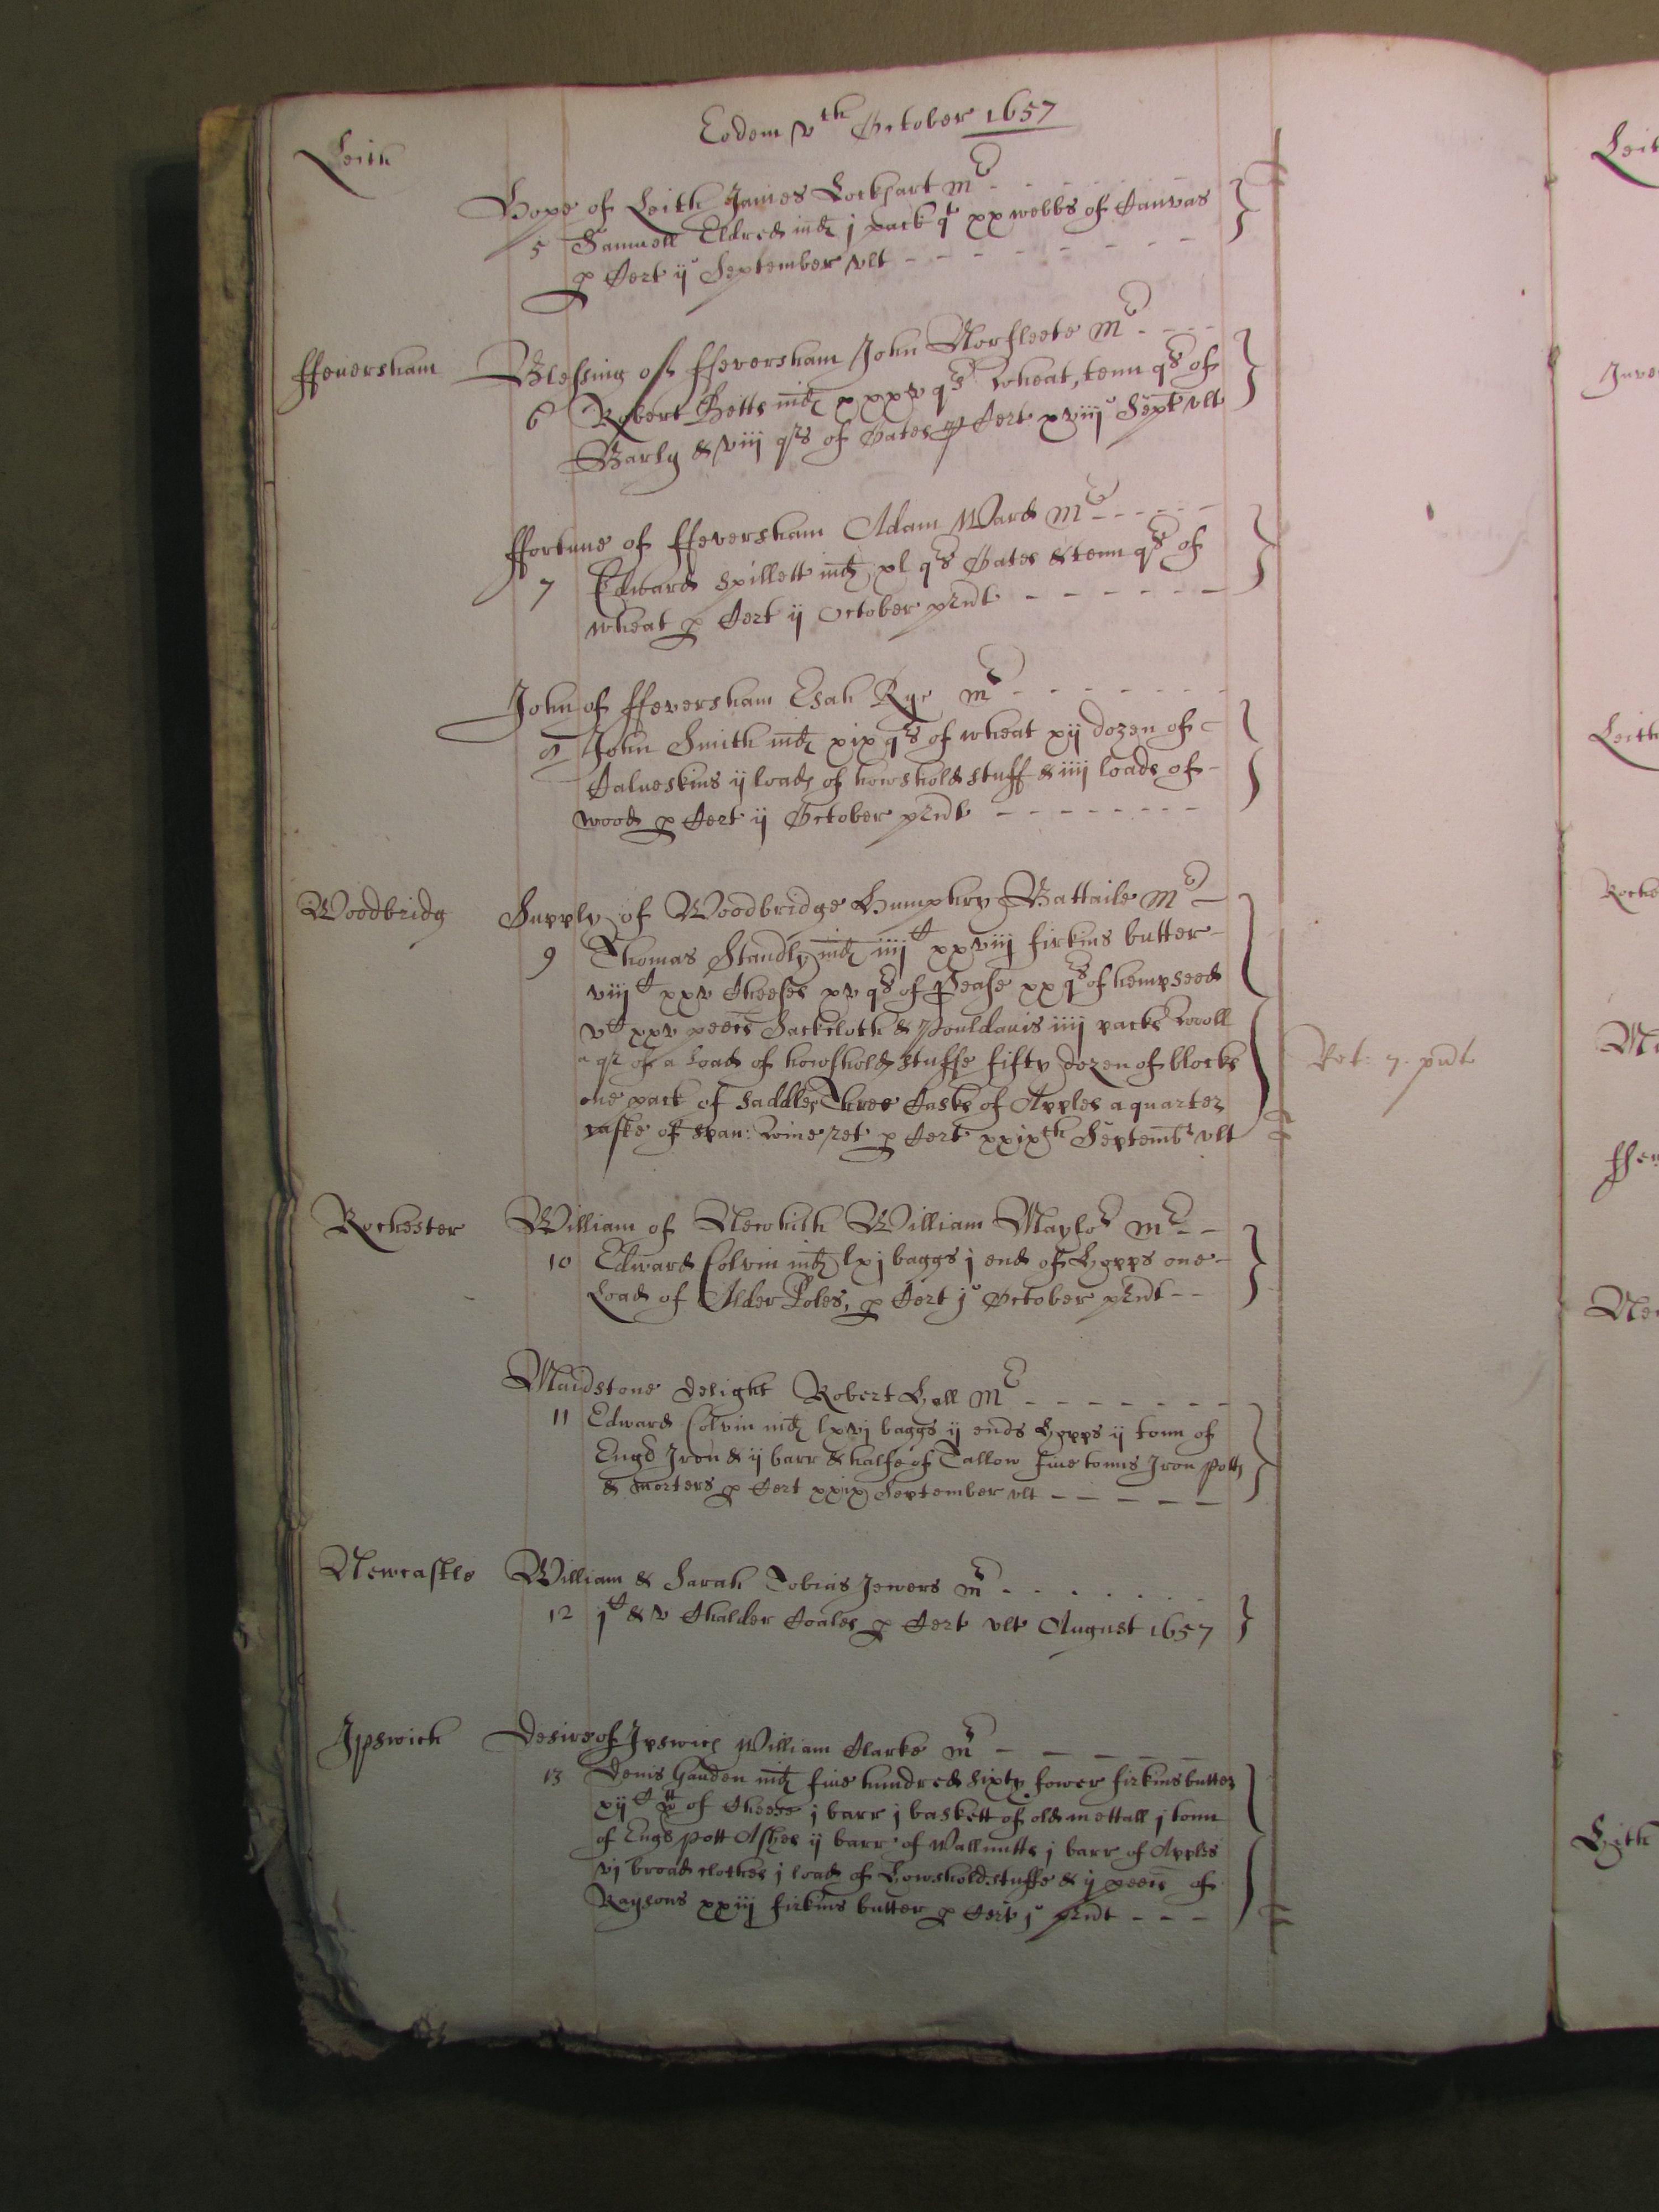 Eodem vth October 1657
Leith
Hope of Leith James Lockhart mr
5 Samuell Eldred indz j pack qt xx webbs of Canvas
p Cert ij° September vlt
ffeuersham Blessing of ffeversham John Norfleete mr
6 Robert Betts indz xxxv qrs wheat, tenn qrs of
Barly & viij qrs of Oates p Cert xviij° Sept vlt
ffortune of ffeversham Adam Ward mr
7 Edward Spillett indz xl qrs Oates & tenn qrs of
wheat p Cert ij October prnt
John of ffeversham Esah Rye mr
8 John Smith indz xix qrs of wheat xij dozen of
Calueskins ij loads of howshold stuff & iiij loads of
wood p Cert ij October prnt
Woodbridg Supply of Woodbridge Humphry Battaile mr
9 Thomas Standly indz iiij C xxviij firkins butter
viij C xxv Cheeses xv qrs of Pease xx qrs of hempseed
v C xxv peeces Sackcloth & Pouldauis iiij packs wooll
a qr of a Load of howshold stuffe fifty dozen of blocks
one pack of Saddles Three Casks of Apples a quarter
caske of Span: wine ret p Cert xxixth Septembr vlt
Ret: 7. prnt
Rochester William of Newhith William Maylo mr
10 Edward Colvin indz lxj baggs j end of Hopps one
Load of Alder Poles, p Cert j° October prnt
Maidstone delight Robert Hall mr
11 Edward Colvin indz lxvj baggs ij ends Hopps ij tonn of
Engd Iron & ij barr & halfe of Tallow fiue tonns Iron potts
& morters p Cert xxix September vlt
Newcastle William & Sarah Tobias Jewers mr
12 j C & v Chalder Coales p Cert vlt August 1657
Ipswich Desire of Ipswich William Clarke mr
13 Denis Gauden indz fiue hundred sixty fower firkins butter
xij C wt of Cheese j barr j baskett of old mettall j tonn
of Engs pott Ashes ij barr of Wallnutts j barr of Apples
vj broad clothes j load of Howsholdstuffe & ij peeces of
Raysons xxiij firkins butter p Cert j° prnt
Leith
Leith